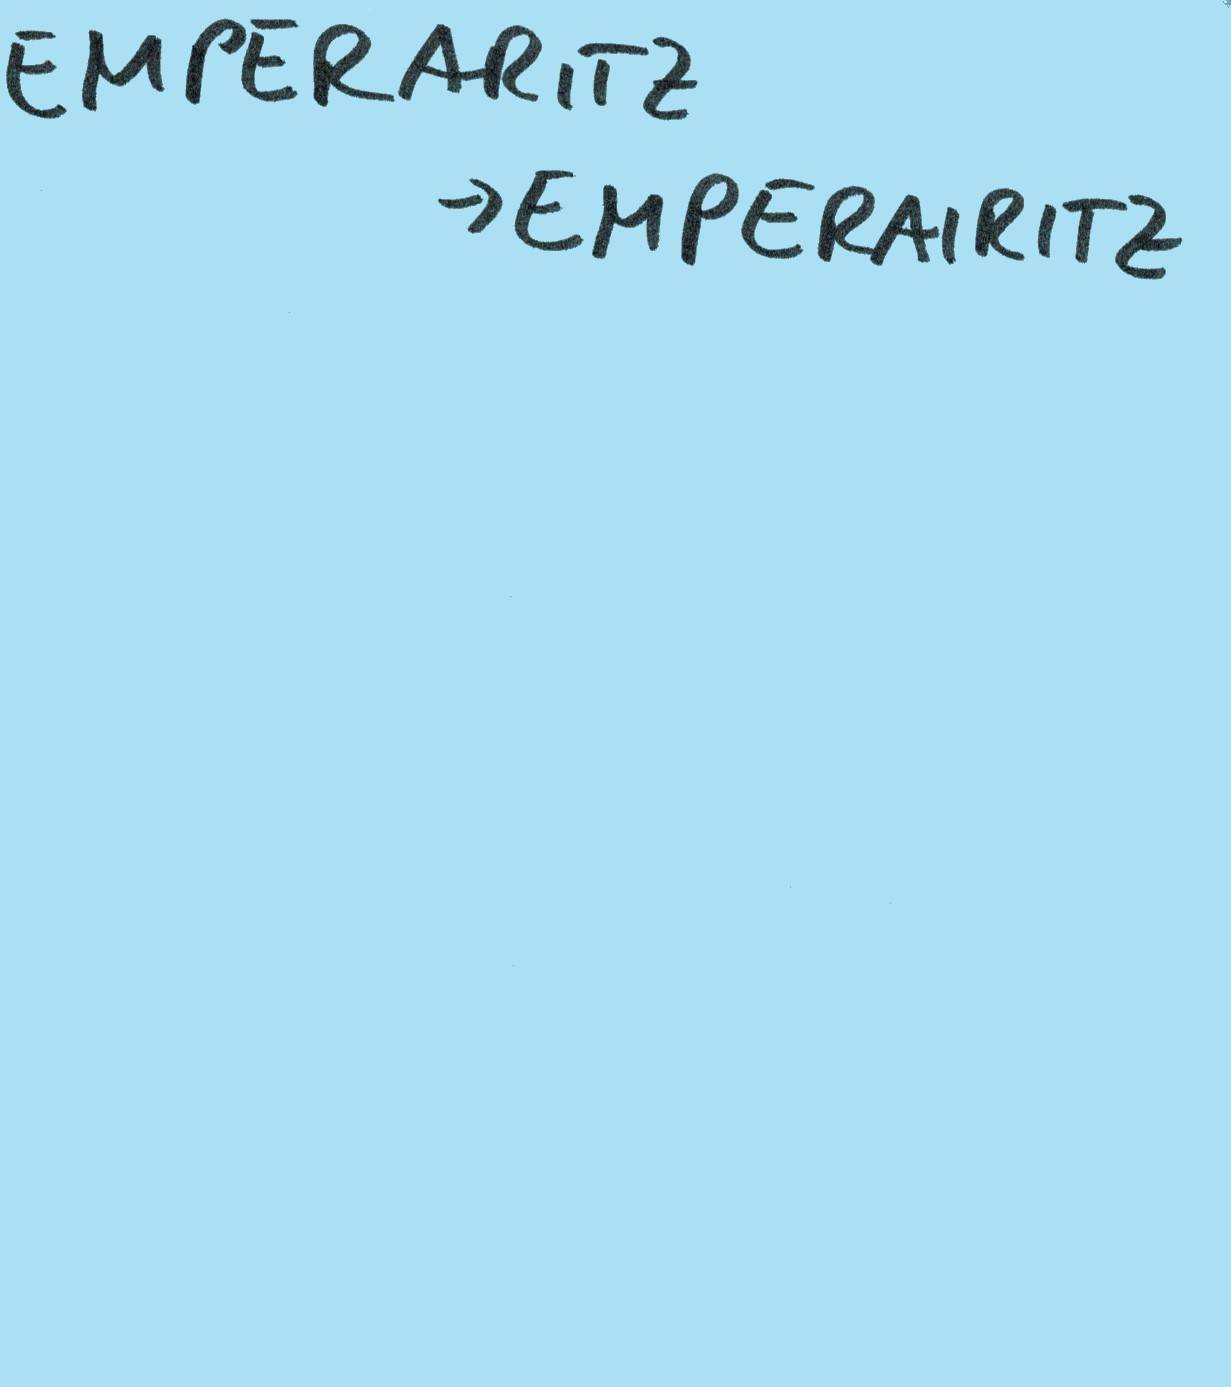 EMPERARITZ
→EMPERAIRITZ